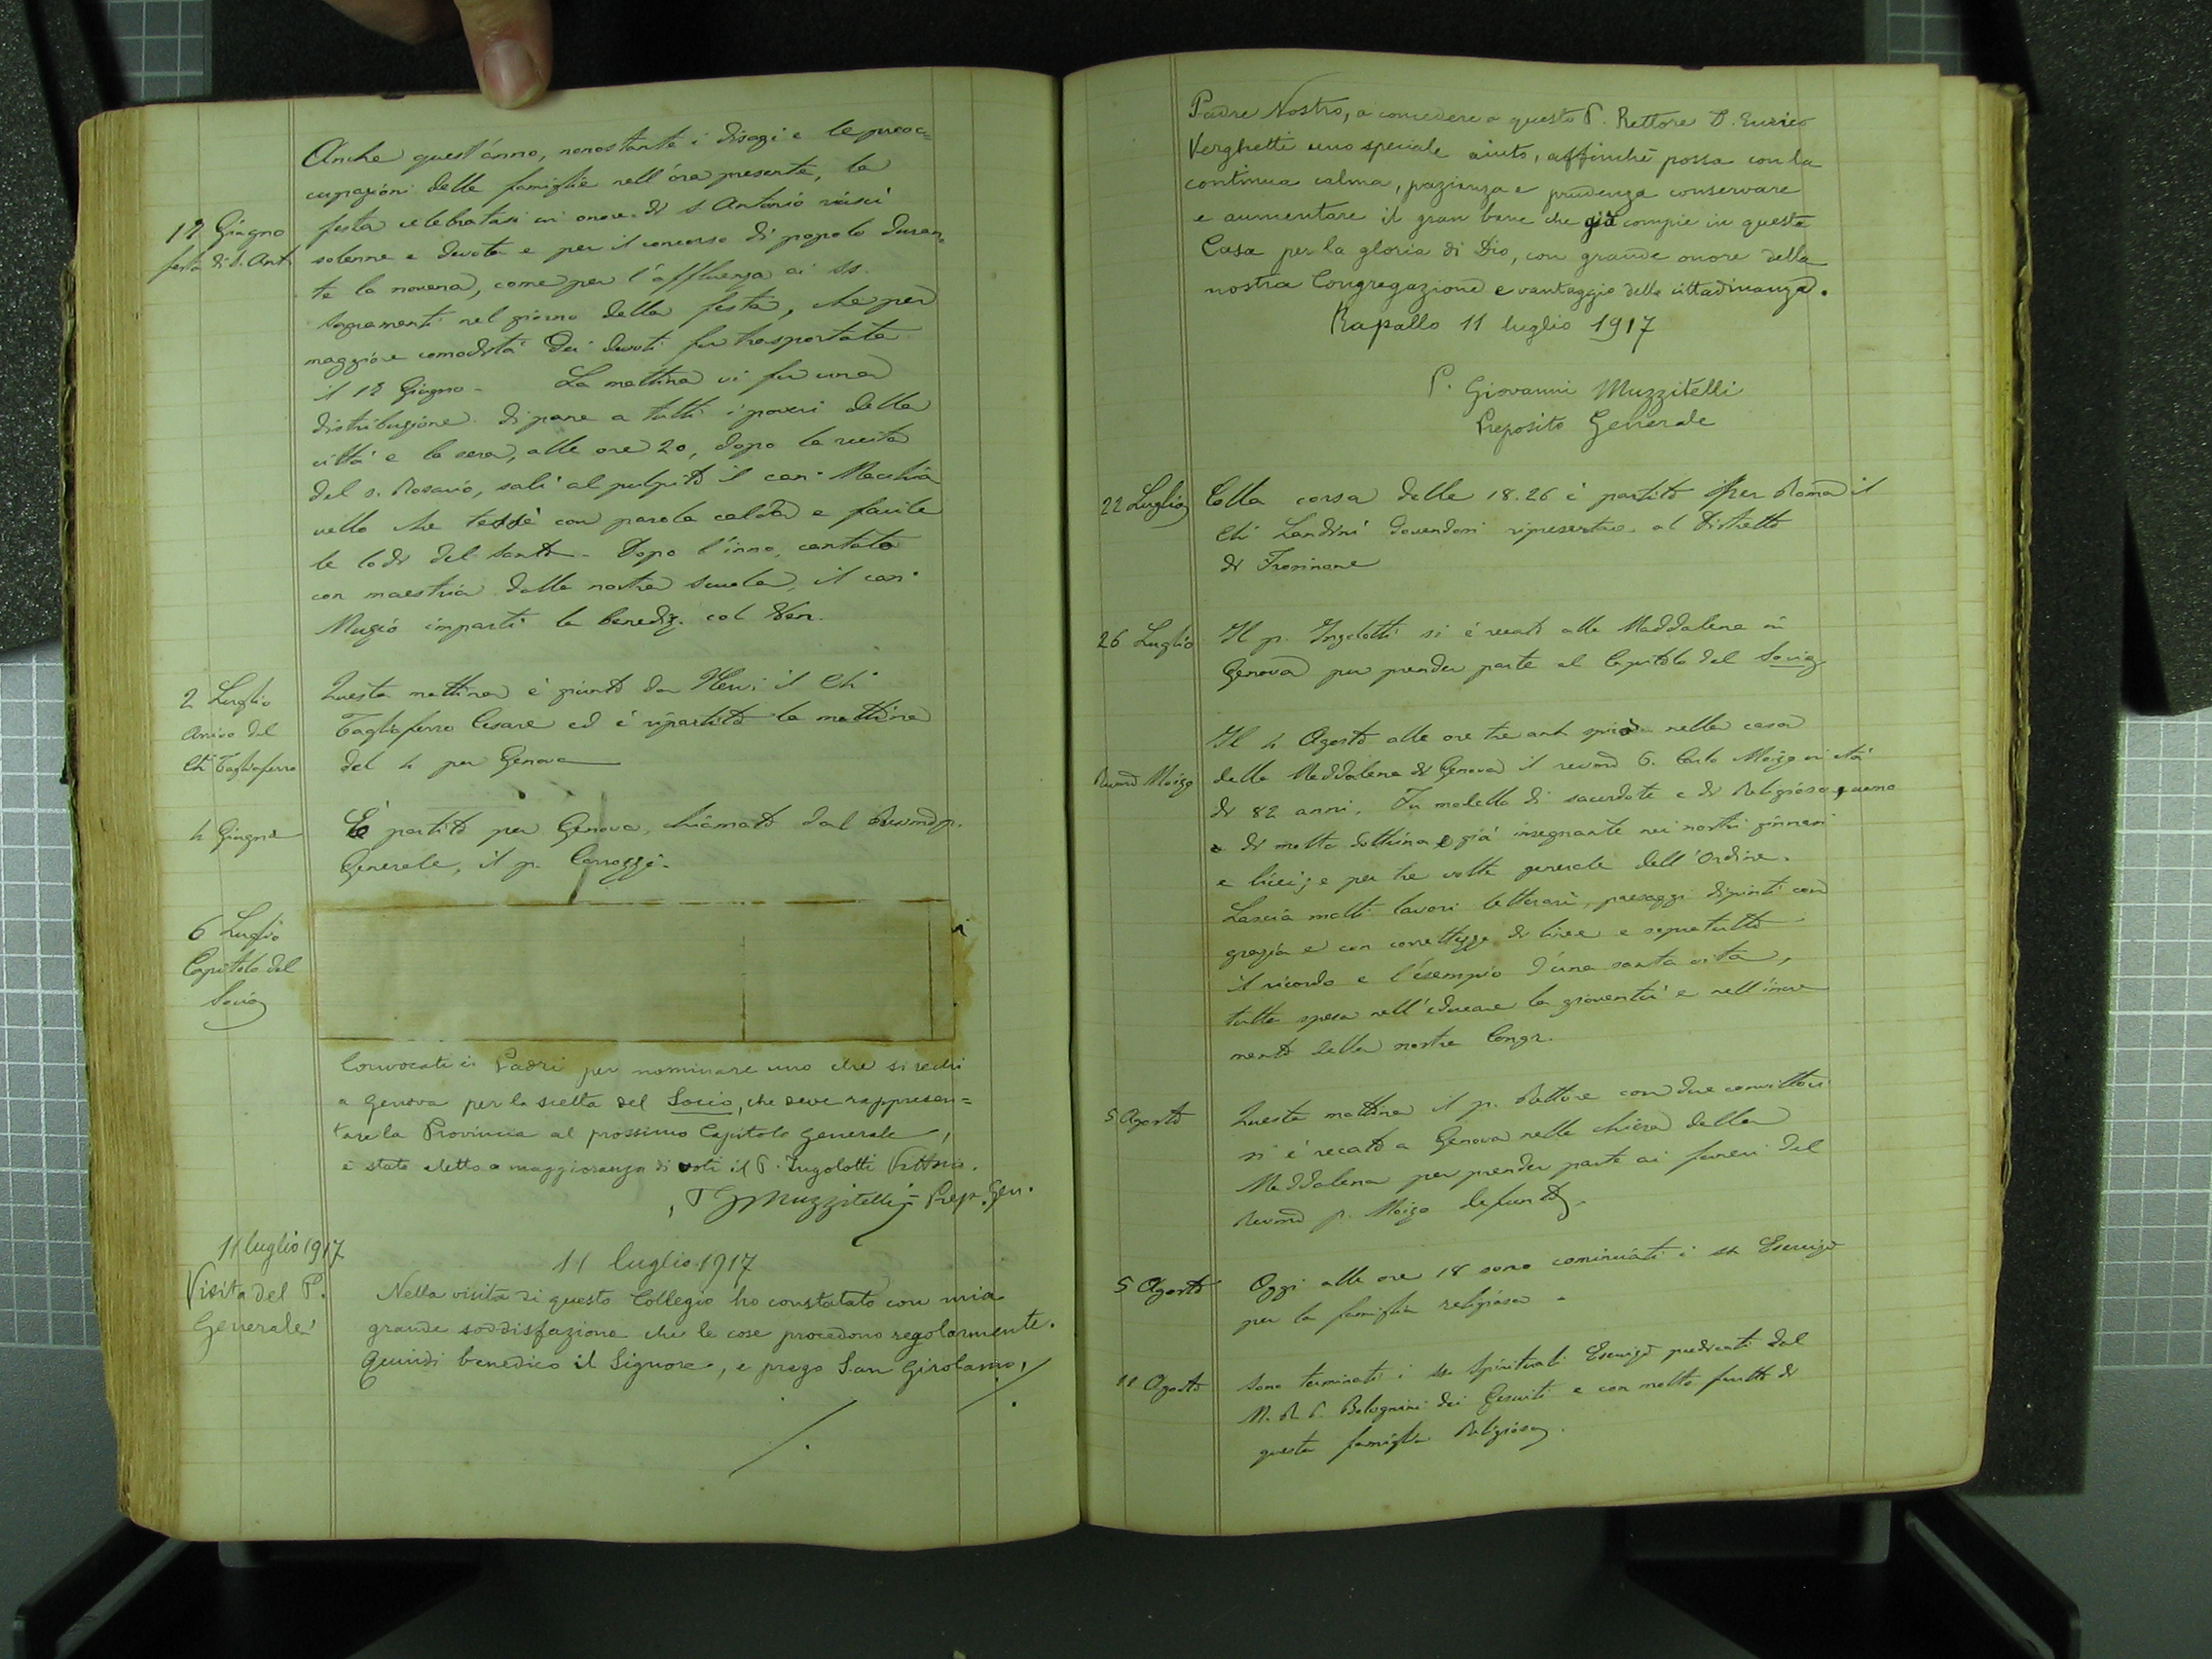 Anche quest'anno, nonostante i disagi e le preoc=
cupazioni delle famiglie nell'ora presente, la
17 Giugno
festa di S. Ant.
festa celebratasi in onore di s. Antonio riuscì
solenne e devota e per il concorso di popolo duran=
te la novena, come per l'affluenza ai ss.
sagramenti nel giorno della festa, che per
maggiore comodità dei devoti fu trasportata
il 17 Giugno - La mattina vi fu una
distribuzione di pane a tutti i poveri della
città e la sera, alle ore 20, dopo la recita
del s. Rosario, salì al pulpito il can. Macchia
vello che tessè con parola calda e facile
le lodi del Santo - Dopo l'inno, cantato
con maestria dalla nostra scuola, il can.
impartì la benediz. col Ven.
2 Luglio
Arrivo del
Ch. Tagliaferro
Questa mattina è giunto da Nervi il Ch.
Tagliaferro Cesare ed è ripartito la mattina
del 4 per Genova
4 Giugno
È partito per Genova, chiamato dal Revmo p.
Generale, il p.
6 Luglio
Capitolo del
Socio
Convocati i Padri per nominare uno che si rechi
a Genova per la scelta del Socio, che deve rappresen=
tare la Provincia al prossimo Capitolo Generale,
è stato eletto a maggioranza di voti il P. Ingolotti Vittorio.
P G Muzzitelli - Prep. Gen.
11 luglio 1917
Visita del P.
Generale
11 luglio 1917
Nella visita di questo Collegio ho constatato con mia
grande soddisfazione che le cose procedono regolarmente.
Quindi benedico il Signore, e prego San Girolamo,
./.
./.
Padre Nostro, a concedere a questo P. Rettore D. Enrico
Verghetti uno speciale aiuto, affinchè possa con la
continua calma, pazienza e prudenza conservare
e aumentare il gran bene che già compie in questa
Casa per la gloria di Dio, con grande onore della
nostra Congregazione e vantaggio della cittadinanza.
Rapallo 11 luglio 1917
P. Giovanni Muzzitelli
Preposito Generale
22 Luglio
Colla corsa delle 18.26 è partito per Roma il
Ch. Landini dovendosi ripresentare al Distretto
di Frosinone
26 Luglio
Il p. Ingolotti si è recato alla Maddalena in
Genova per prender parte al Capitolo del Socio
Il 4 Agosto alle ore tre ant. spirò nella casa
Revmo Moizo
della Maddalena di Genova il revmo P. Carlo Moizo in età
di 82 anni. Fu modello di sacerdote e di Religioso, uomo
di molta dottrina e già insegnante nei nostri ginnasi
e licei; e per tre volte generale dell'Ordine.
Lascia molti lavori letterari, paesaggi dipinti con
grazia e con correttezza di linee e sopratutto
il ricordo e l'esempio d'una santa vita,
tutta spesa nell'educare la gioventù e nell'incre
mento della nostra Congr.
5 Agosto
Questa mattina il p. Rettore con due convittori
si è recato a Genova nella chiesa della
Maddalena per prender parte ai funeri del
Revmo p. Moizo defunto.
5 Agosto
Oggi alle ore 18 sono cominciati i ss. Esercizi
per la famiglia religiosa -
11 Agosto
Sono terminati i ss. Spirituali Esercizi predicati dal
M. R. P. Bolognini dei Gesuiti e con molto frutto di
questa famiglia Religiosa.